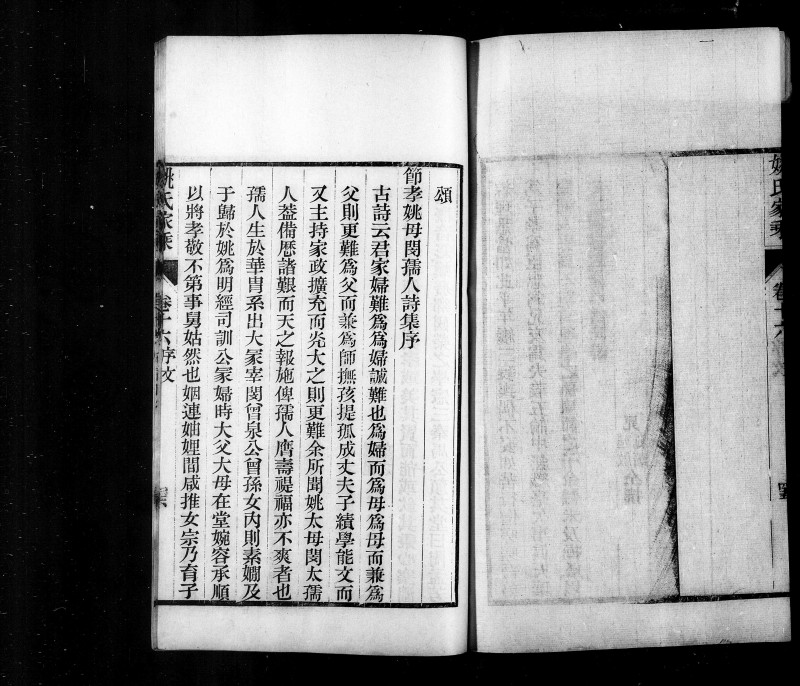 姚氏家乘
卷十六
頌
節孝姚母閔孺人詩集序
古詩云君家婦難爲爲婦誠難也爲婦而爲母爲母而兼爲
父則更難爲父而兼爲師撫孩提孤成丈夫子績學能文而
又主持家政擴充而光大之則更難余所聞姚太母閔太孺
人葢備厯諸艱而天之報施俾孺人膺壽禔福亦不爽者也
孺人生於華胄系出大家宰閔曾泉公曾孫女內則素嫺及
于歸於姚爲明經司訓公冢婦時大父大母在堂婉容承順
以將孝敬不第事舅姑然也姻連妯娌間咸推女宗乃育子
姚氏家乘
卷十六序文